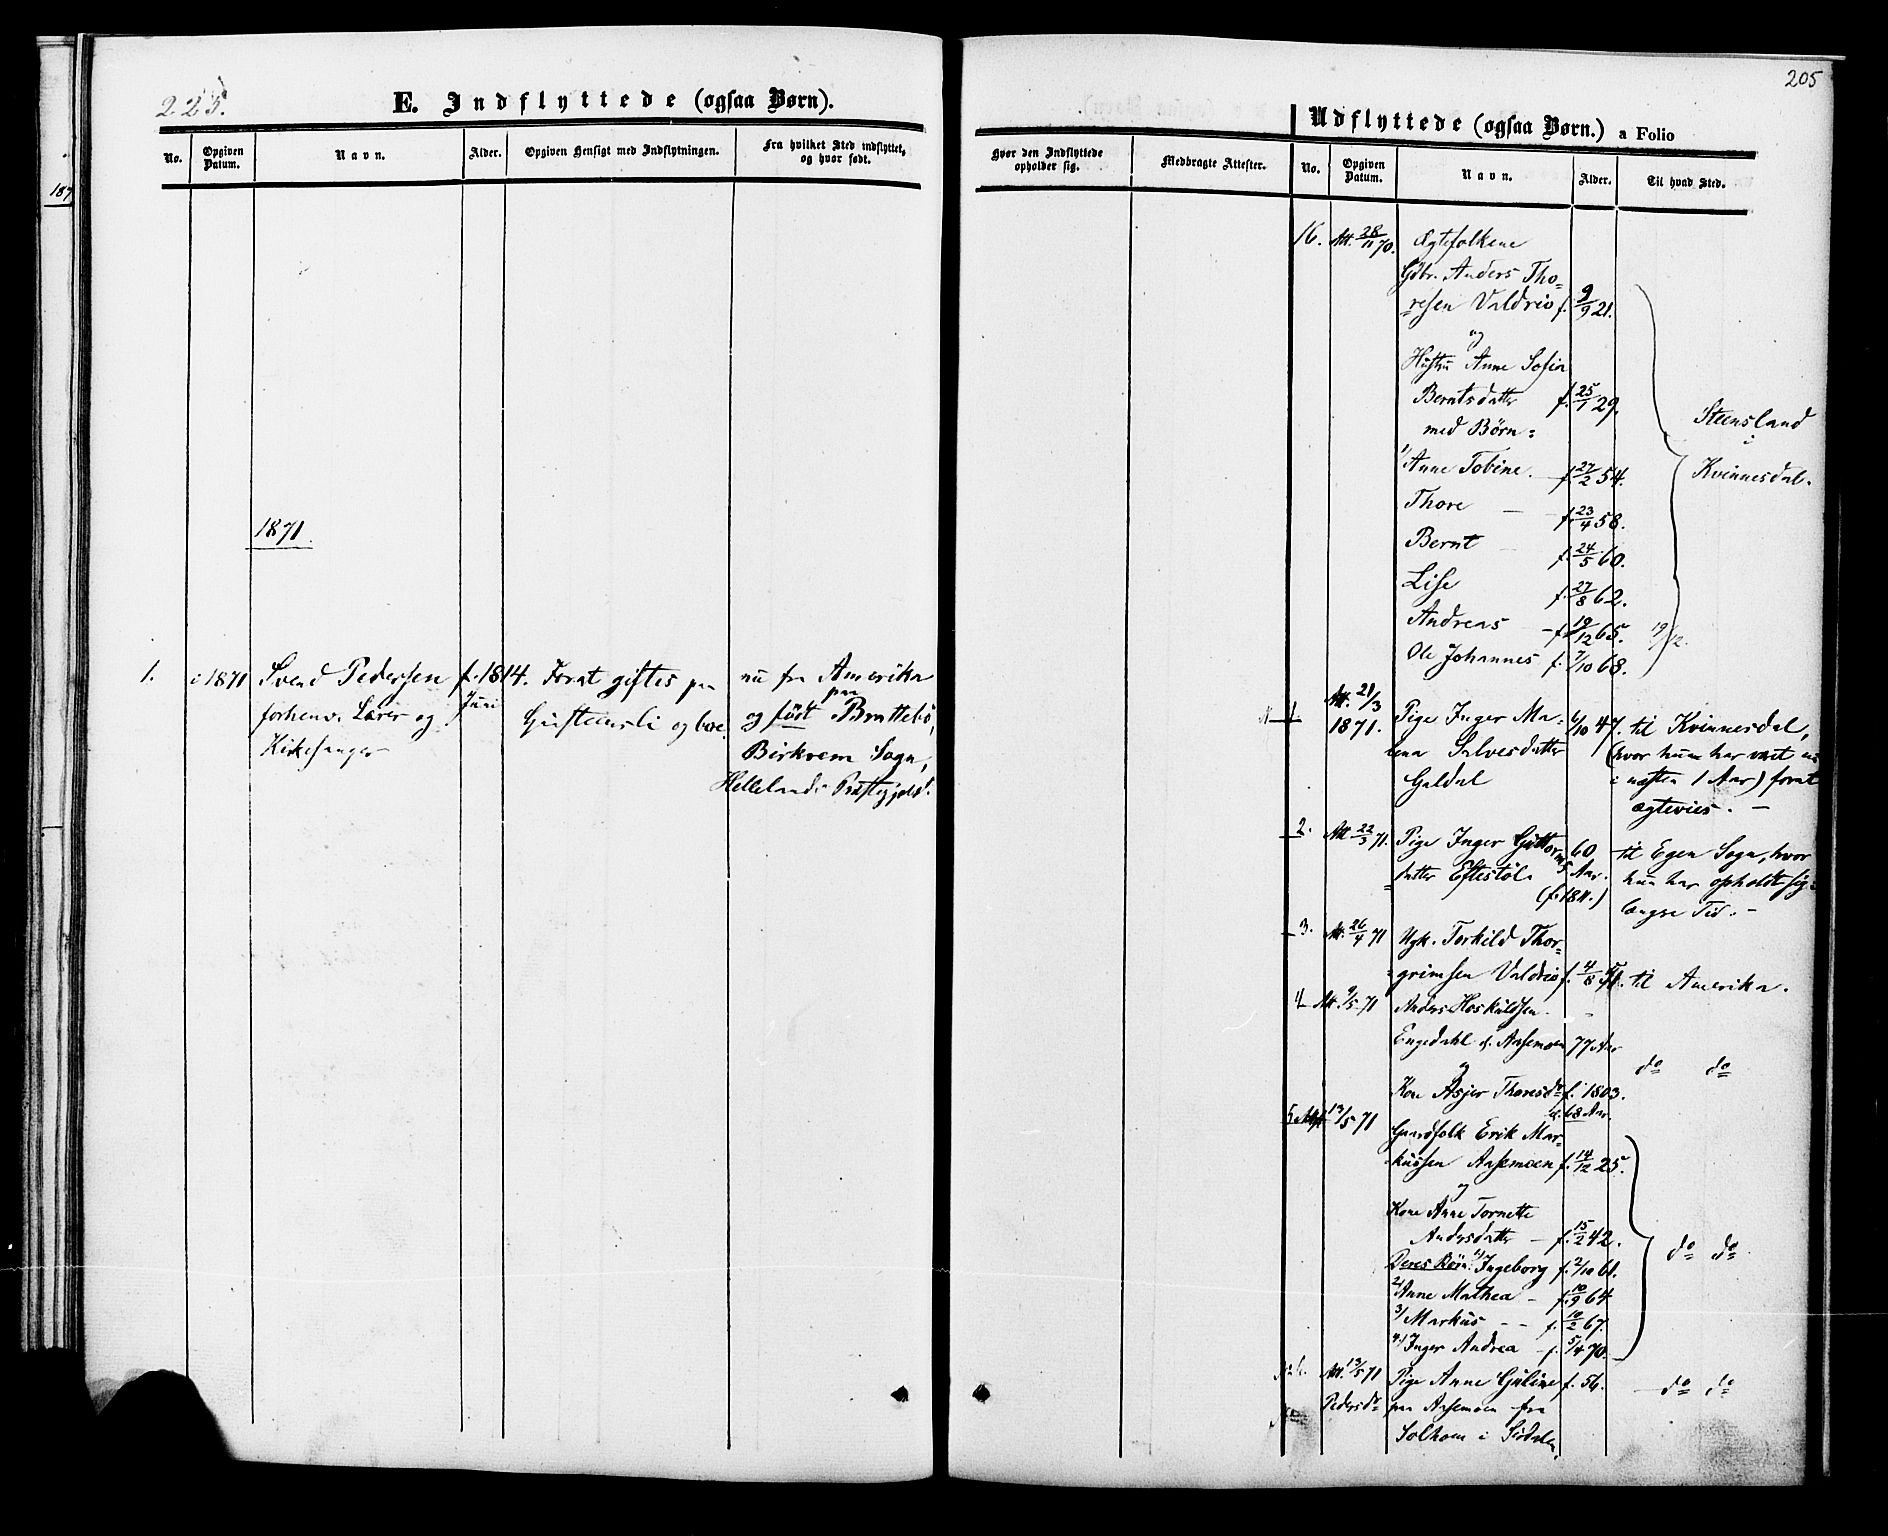 225.
E. Indflyttede (ogsaa Børn).
No.
Opgiven Datum.
Navn.
Alder.
Opgiven Hensigt med Indflytningen.
Fra hvilket Sted indflyttet, og hvor født.
187
1871.
1.
i 1871
Svend Pedersen
forhenv. Lærer og
Kirkesanger
f. 1814.
Juni
Forat giftes paa
og boe.
nu fra Amerika
og født paa Brattebø,
Birkrem Sogn,
Hellelands Præstegjeld.
205
Udflyttede (ogsaa Børn.) a Folio
Hvor den Indflyttede opholder sig.
Medbragte Attester.
No.
Opgiven Datum.
Navn.
Alder.
Til hvad Sted.
16. Att. 28/11 70. Ægtefolkene
Gdbr. Anders Tho-
=resen Valdrio f. 9/9 21.
og
Hustru Anne Sofia
Berntsdatter f. 25/1 29.
med Børn:
1/ Anne Tobine. f. 27/2 54.
Thore — f. 23/4 58.
Bernt — f. 24/5 60.
Lise f. 27/8 62.
Andreas — f. 19/12 65. 19/12.
Ole Johannes f. 7/10 68.
Steensland
i
Kvinnesdal.
1 Att. 21/3 1871. Pige Inger Ma-
lena Salvesdatter
Galdal
6/10 47. til Kvinnesdal,
(hvor hun har været nu
i næsten 1 Aar) forat
ægtevies. —
2. Att. 22/3 71. Pige Inger Guttorms
=datter Eftestøl.
60 Aar.
(f. 1811.)
til Egen Sogn, hvor
hun har opholdt sig
længre Tid. —
3. Att. 26/4 71 Ugk. Torkild Thor-
=grimsen Valdrio f. 4/8 51. til Amerika.
4 Att. 9/5 71 Anders Hoskuldsen
Engedahl Aasemoen 77 Aar
og
Kone Asjer Thoresd. f. 1803.
68 Aar.
do do
5 Att. 13/5 71
Gaardfolk Erik Mar-
=kussen Aasemoen f. 14/12 25.
og
Kone Anne Tornette
Andersdatter — f. 15/2 42.
Deres Børn: 1/ Ingeborg f. 2/10 61.
2/ Anne Mathea — f. 10/9 64
3/ Markus — f. 10/2 67.
4/ Inger Andrea — f. 5/4 70.
do do
Att. 13/5 71 Pige Anne Guline f. 56.
Pedersd. paa Aasemoen fra
Solhom i Sirdalen.
do do